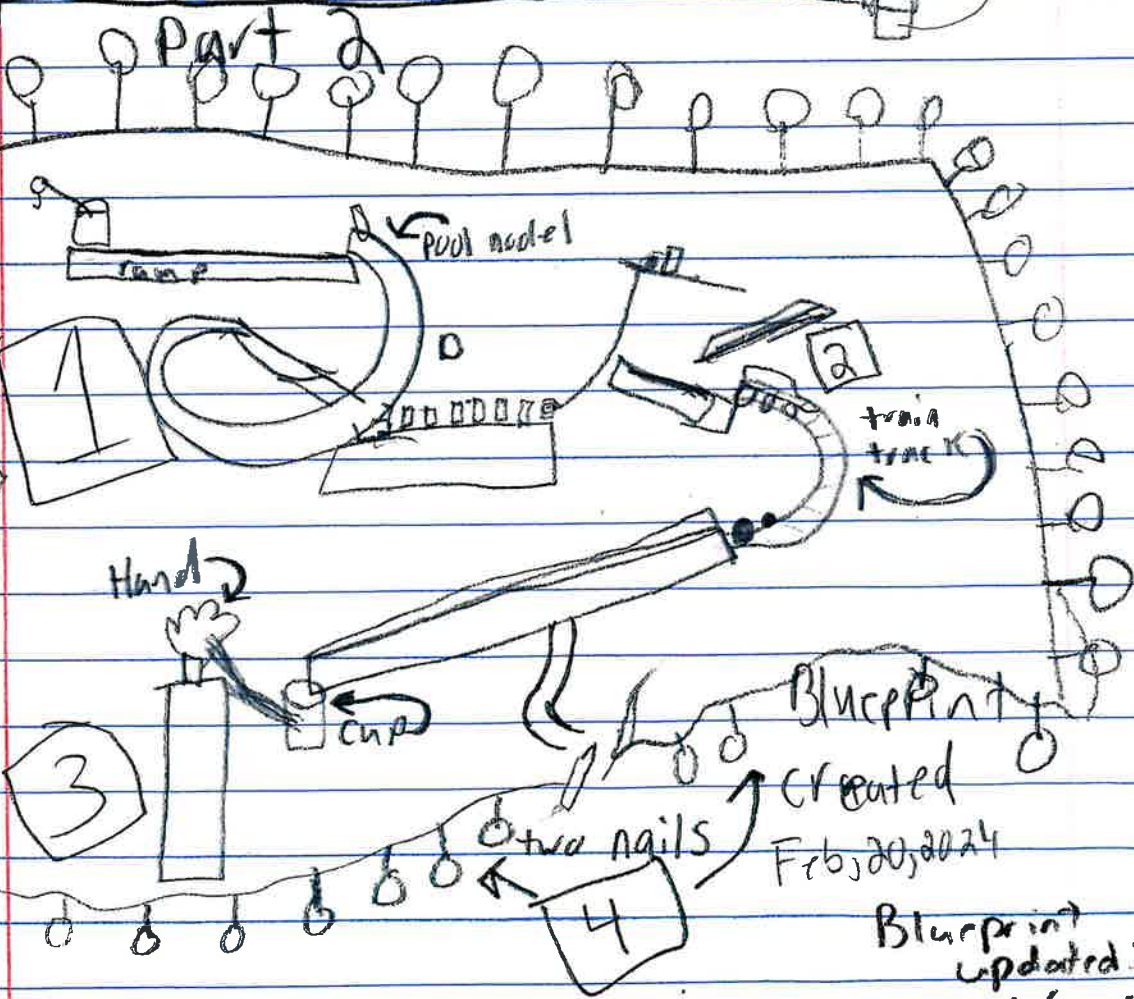 Part 2
pool nodel
ramp
1
2
train
track
Hand
cup
3
Blueprint
created
Feb,20,2024
two nails
4
Blurprint
updated: